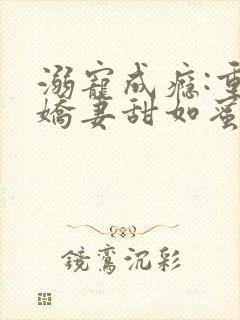 溺寵成癮:重
嬌妻甜如蜜
鏡鸞沉彩